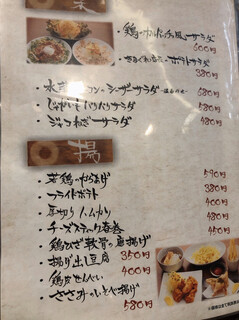 菜
・鶏のカルパッチョ風サラダ
500円
ポテトサラダ
380円
・水菜ベーコンシーザーサラダ
580円
・じゃがいもパリパリサラダ
580円
・ジャコねぎサラダ
480円
揚
・若鶏のからあげ
590円
・フライドポテト
380円
・厚切りハムカツ
400円
・チーズスティック春巻
450円
・鶏ひざ軟骨の唐揚げ
480円
・揚げ出し豆腐 350円
・鶏皮せんべい 400円
・ささみのいそべ揚げ
580円